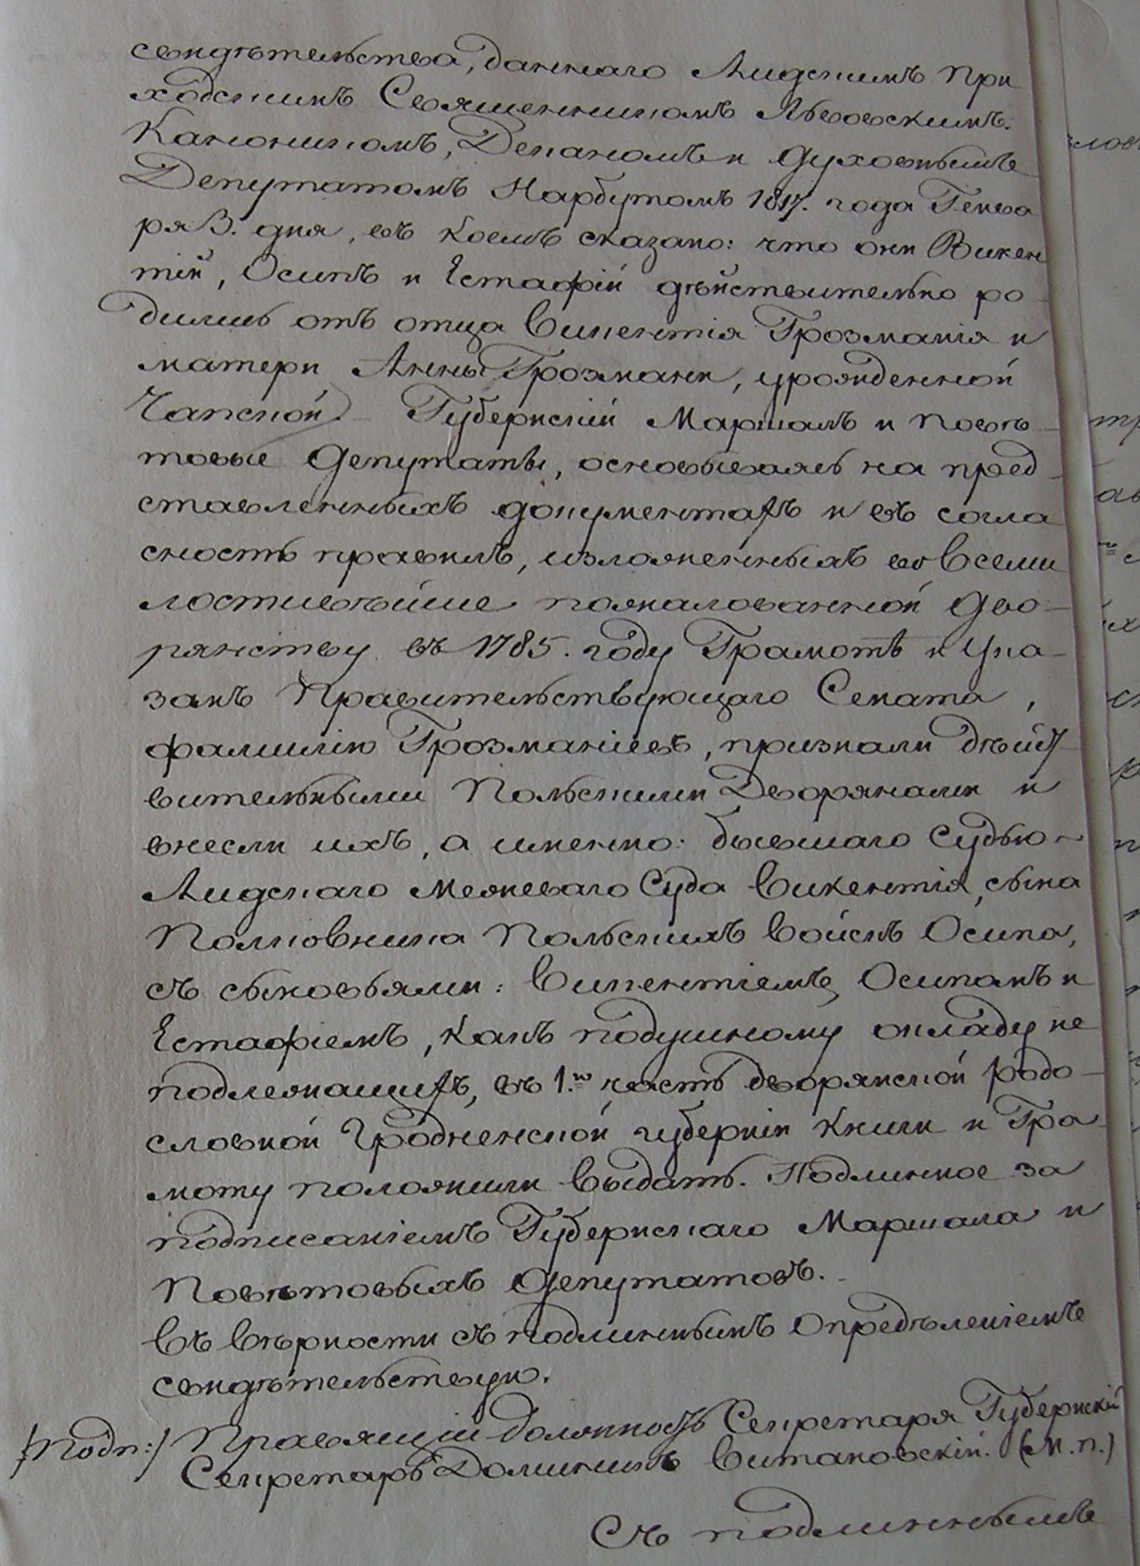 свидѣтельства, даннаго Лидскимъ При
ходскимъ Священникомъ Львовскимъ.
Каноникомъ, Деканомъ и Духовнымъ
Депутатомъ Нарбутомъ 1817. года Генва
ря 3. дня, въ коемъ сказано: что они Викен
тій, Осипъ и Естафій дѣйствительно ро-
дились отъ отца Викентія Грозманія и
матери Анны Грозмани, урожденной
Чапской) Губернскій Маршалъ и Повѣ-
товые Депутаты, основываясь на пред-
ставленныхъ документахъ и въ согла
сность правилъ, изложенныхъ во Всеми
лостивѣйше пожалованной Дво-
рянству въ 1785. году Грамотѣ и Ука-
замъ Правительствующаго Сената,
фамилію Грозманіевъ, признали дѣйст
вительными Польскими Дворянами и
внесли ихъ, а именно: бывшаго Судью
Лидскаго Межеваго Суда Викентія, сына
Полковника Польскихъ Войскъ Осипа,
съ сыновьями: Викентіемъ, Осипомъ и
Естафіемъ, какъ подушному окладу не
подлежащихъ, въ 1.ю часть дворянской родо-
словной Гродненской губерніи книги и Гра-
моту положили выдать. Подлинное за
подписаніемъ Губернскаго Маршала и
Повѣтовыхъ Депутатовъ.
Въ вѣрности съ подлиннымъ Опредѣленіемъ
свидѣтельствую.
/Подп:/ Правящій должность Секретаря Губернскій
Секретарь Доминикъ Витаковскій. (М.п.)
Съ подлиннымъ